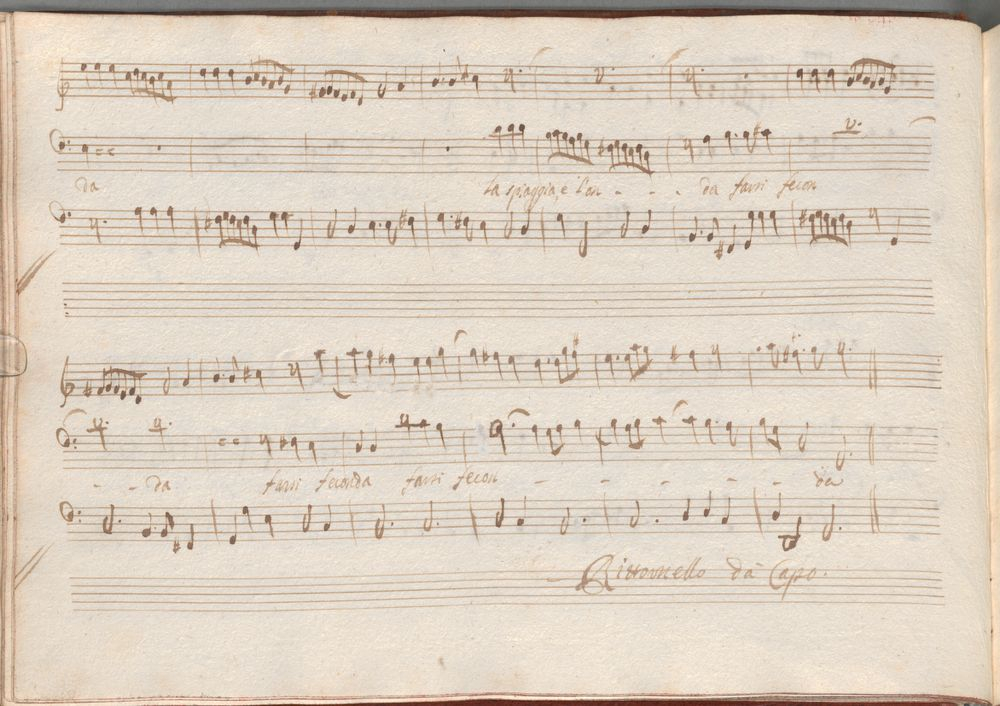 da la spiaggia, e l'on - - - da farsi fecon
- - da farsi feconda farsi fecon - - - - - - da
Rittornello da Capo.